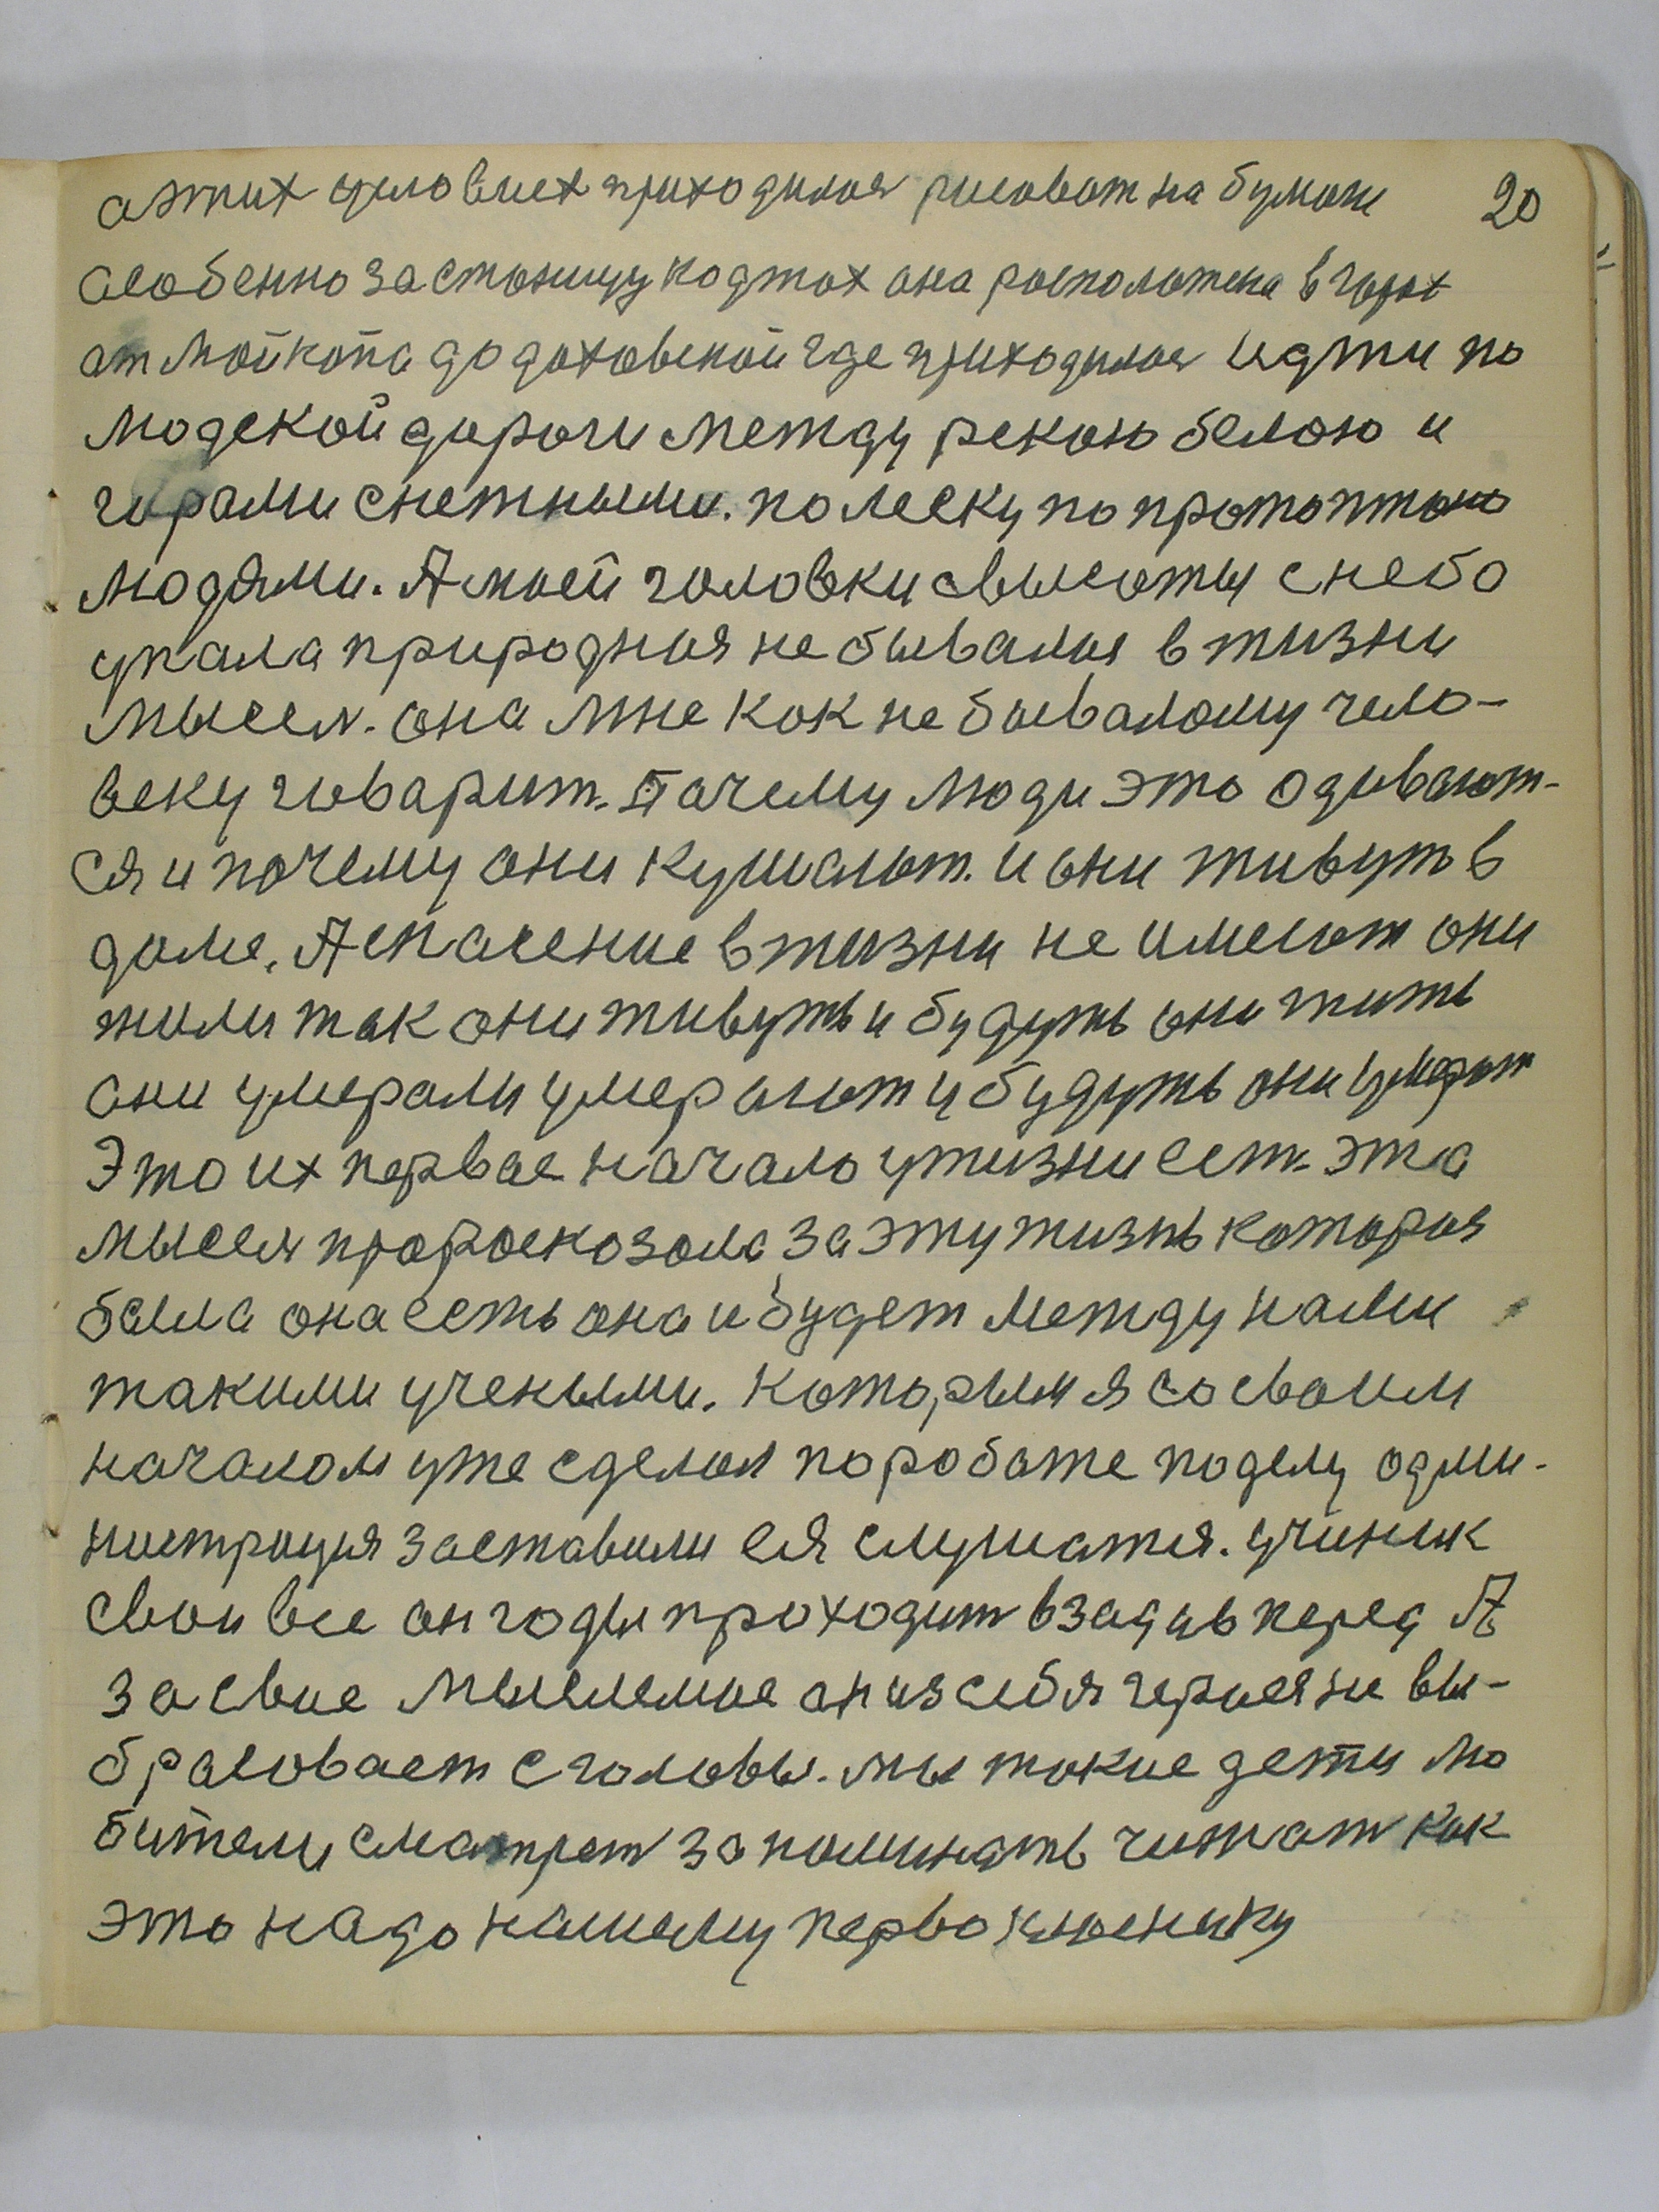 а этих условиех приходилося рисоват на бумаги 20
особенно за станицу коджох она росположена в горах
от Мойкопа до даховской где приходилося идти по
людской дороги между рекою белою и
гирами снежными. по леску по протоптано
людями. А моей головки свысоты с небо
упала природная не бывалыя в жизни
мысел. она мне как не бывалому чело-
веку говарит. Почему люди это одивают-
ся и почему они кушают. и они живут в
доме. А спасение в жизни не имеют они
жили так они живуть и будуть они жить
они умерали умерают и будуть они умерат
Это их первае начало у жизни ест. эта
мысля проросказала за эту жизнь которая
была она есть она и будет между нами
такими учеными. которым я со своим
началом уже сделал по роботе по делу одми-
нистрация заставили ея слушатся. учиник
свои все он годы проходит взад ивперед А
за свое мыслемое он из себя черися не вы-
брасовает с головы. мы такие дети лю
бители сматрет запоминать читат как
это надо нашему первокласнику